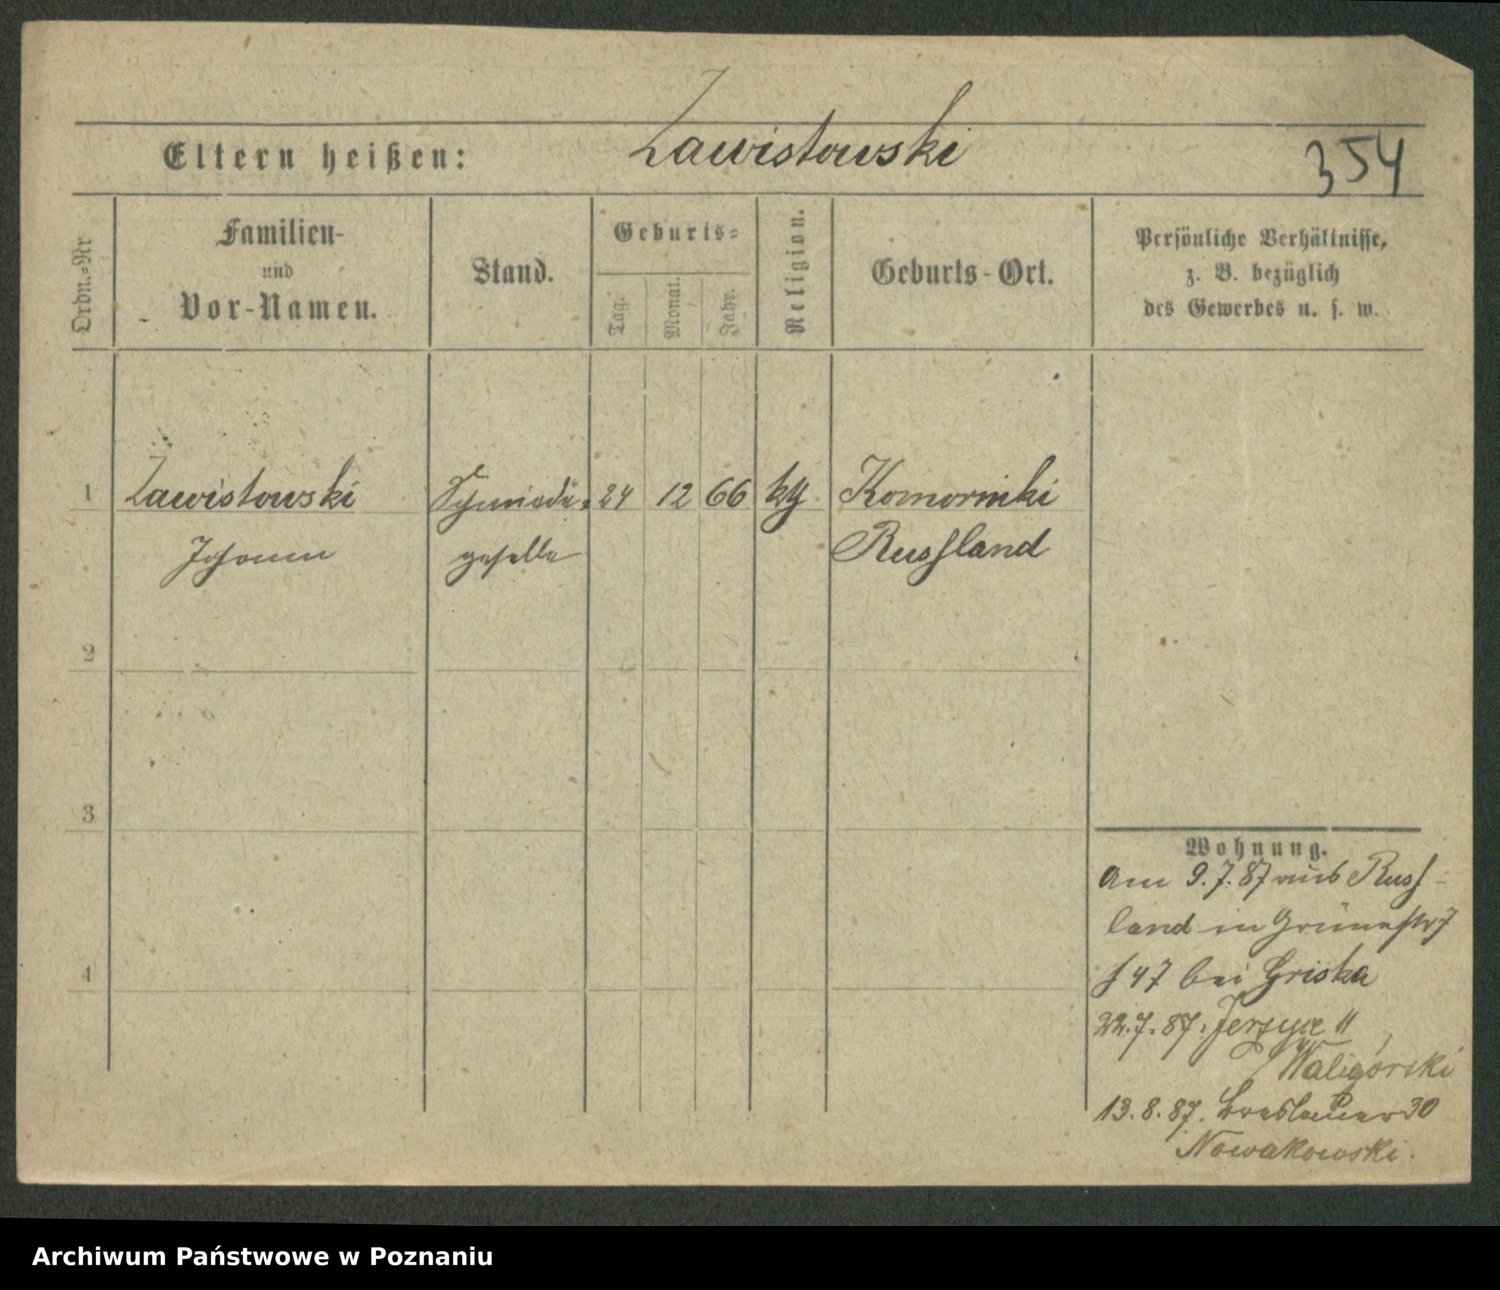 Zawistowski
Eltern heißen:
354
Ordn.=Nr
Familien-
und
Vor-Namen.
Stand.
Geburts=
Tag.
Monat.
Jahr.
Religion.
Geburts-Ort.
Persönliche Verhältnisse,
z. B. bezüglich
des Gewerbes u. s. w.
1 Zawistowski Schmiede= 24 12 66 kg Komorniki
Johann geselle Russland
2
3
4
Wohnung.
Am 9.7.87 aus Russ-
land in Grünestr 7
47 bei Griska
22.7.87. Jersyce 11
Waligórski
13.8.87. Breslauer 30
Nowakowski.
Archiwum Państwowe w Poznaniu